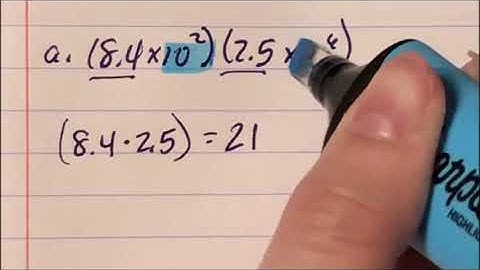 a. (8.4×10²)(2.5×   )
(8.4·2.5) = 21
HIGHLI